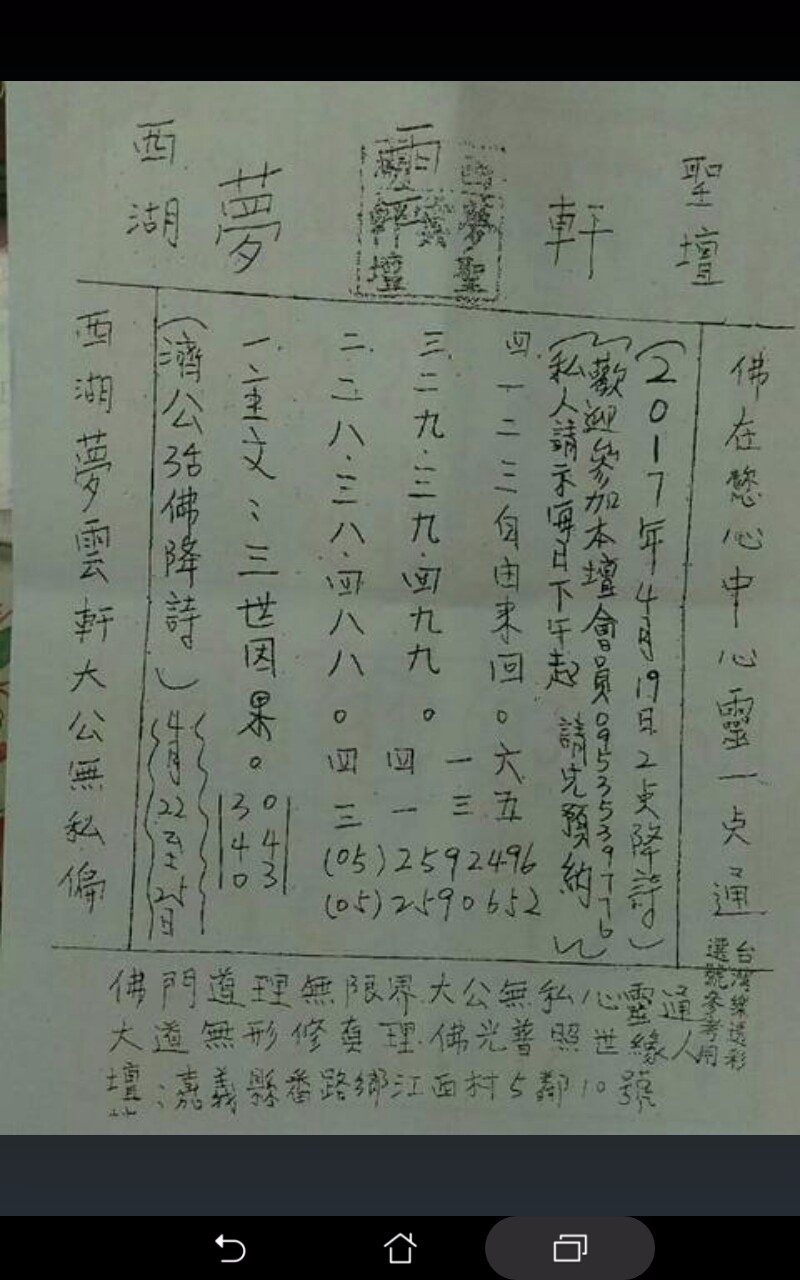 西湖夢雲軒聖壇
佛在您心中心靈一点通
台灣樂透彩
選號參考用
(2017年4月19日2点降詩)
(歡迎參加本壇會員0953539776
私人請示每日下午起 請先預約)
四.一二三自由来回。六五
三.二九.三九.四九九。一三
二.二八.三八.四八八。四一
四三
(05)2592496
(05)2590652
一.主文:三世因果。
043
340
(濟公活佛降詩)
4月22至25日
西湖夢雲軒大公無私偏
佛門道理無限界大公無私心靈通
大道無形修真理.佛光普照世緣人
壇:嘉義縣番路鄉江西村5鄰10號